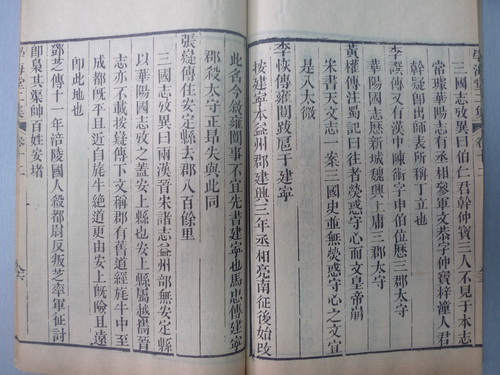 三國志攷異曰伯仁君幹仲寶三人不見于本志
當璩華陽志有丞相參軍文恭字仲寶梓潼人君
幹疑卽出師表所稱丁立也
李譔傳又有漢中陳術字申伯位歷三郡太守
華陽國志歷新城魏興上庸三郡太守
黃權傳注蜀記曰往者熒惑守心而文皇帝崩
宋書天文志一案三國史並無熒惑守心之文宜
是入太微
李恢傳雍闓跋扈于建寧
按建寧本益州郡建興三年丞相亮南征後始改
此名今敘雍闓事不宜先書建寧也馬忠傳建寧
郡殺太守正昂失與此同
張嶷傳住安定縣去郡八百餘里
三國志攷異曰兩漢晉宋諸志益州部無安定縣
以華陽國志攷之蓋安上縣也安上縣屬越嶲晉
志亦不載按嶷傳下文稱郡有舊道經旄牛中至
成都旣平且近自旄牛絕道更由安上旣險且遠
卽此地也
鄧芝傳十一年涪陵國人殺都尉反叛芝率軍征討
卽梟其渠帥百姓安堵